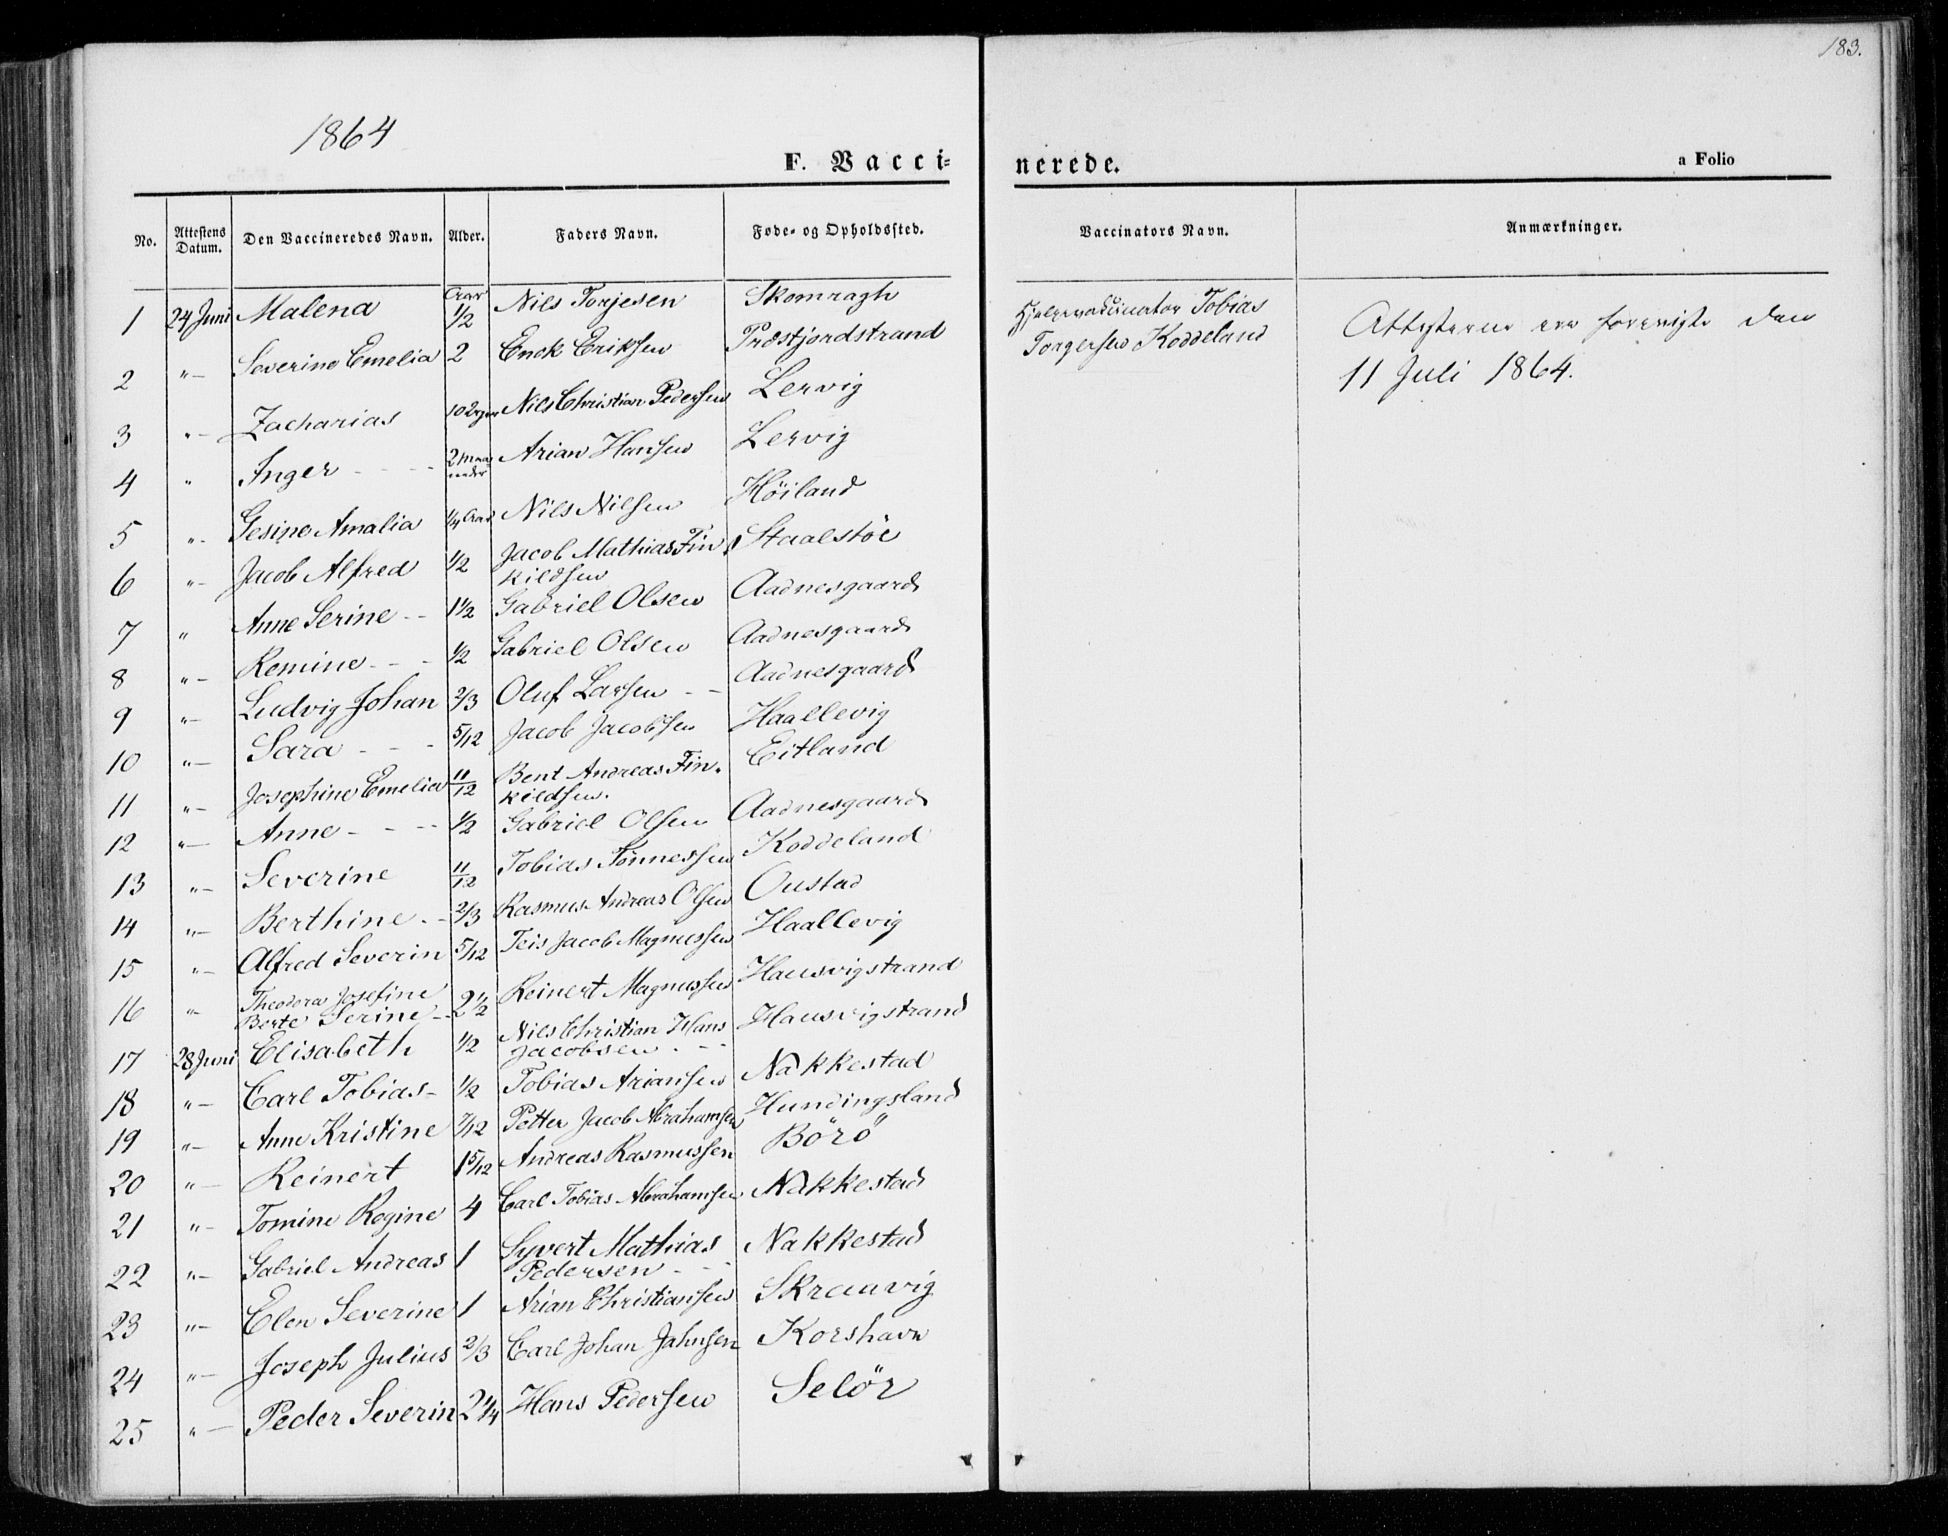 183.
1864
F. Vacci=
nerede.
a Folio
No. Attestens Datum. Den Vaccineredes Navn. Alder. Faders Navn. Føde- og Opholdssted. Vaccinators Navn. Anmærkninger.
1 24 Juni Malena Aar 1/2 Nils Torjesen Skomragh Hjelpevaccinator Tobias Attesterne ere forevigte den
2 "— Severine Emelia 2 Enok Eriksen Præstjordstrand Torgersen Koddeland 11 Juli 1864.
3 "— Zacharias 10 Uger Nils Christian Pedersen Lervig
4 " Inger - - - - 2 Maaneder Arian Hansen Lervig
5 "- Gesine Amalia 1/4 Aar Nils Nilsen Höiland
6 "- Jacob Alfred 1/2 Jacob Mathias Fin- Staalstöe
kildsen
7 " Anne Serine - - 1 1/2 Gabriel Olsen Aadnesgaard
8 "— Remine - - - 1/2 Gabriel Olsen Aadnesgaard
9 "— Ludvig Johan 2/3 Oluf Larsen - - Aadnesgaard
10 "— Sara - - - 5/12 Jacob Jacobsen Haallevig
11 "— Josephine Emelia 11/12 Bent Andreas Fin- Eitland
kildsen.
12 "— Anne - - - - 1/2 Gabriel Olsen Aadnesgaard
13 "— Severine 11/12 Tobias Tönnessen Koddeland
14 "— Berthine - - 2/3 Rasmus Andreas Olsen Oustad
15 "— Alfred Severin 5/12 Teis Jacob Magnussen Haallevig
16 "- Theodora Josefine
Berte Serine - - 2 1/2 Reinert Magnussen Hausvigstrand
17 28 Juni Elisabeth 1/2 Nils Christian Hans Hausvigstrand
Jacobsen - - -
18 "— Carl Tobias - 1/2 Tobias Ariansen Nakkestad
19 "— Anne Kristine 7/12 Petter Jacob Abrahamsen Hundingsland
20 "— Reinert 1 5/12 Andreas Rasmussen Börö
21 "— Tomine Regine 4 Carl Tobias Abrahamsen Nakkestad
22 "— Gabriel Andreas 1 Syvert Mathias Nakkestad
Pedersen - - -
23 "— Elen Severine 1 Arian Christiansen Skraavig
24 "— Joseph Julius 2/3 Carl Johan Jahnsen Korshavn
25 "— Peder Severin 2 1/4 Hans Pedersen Selör